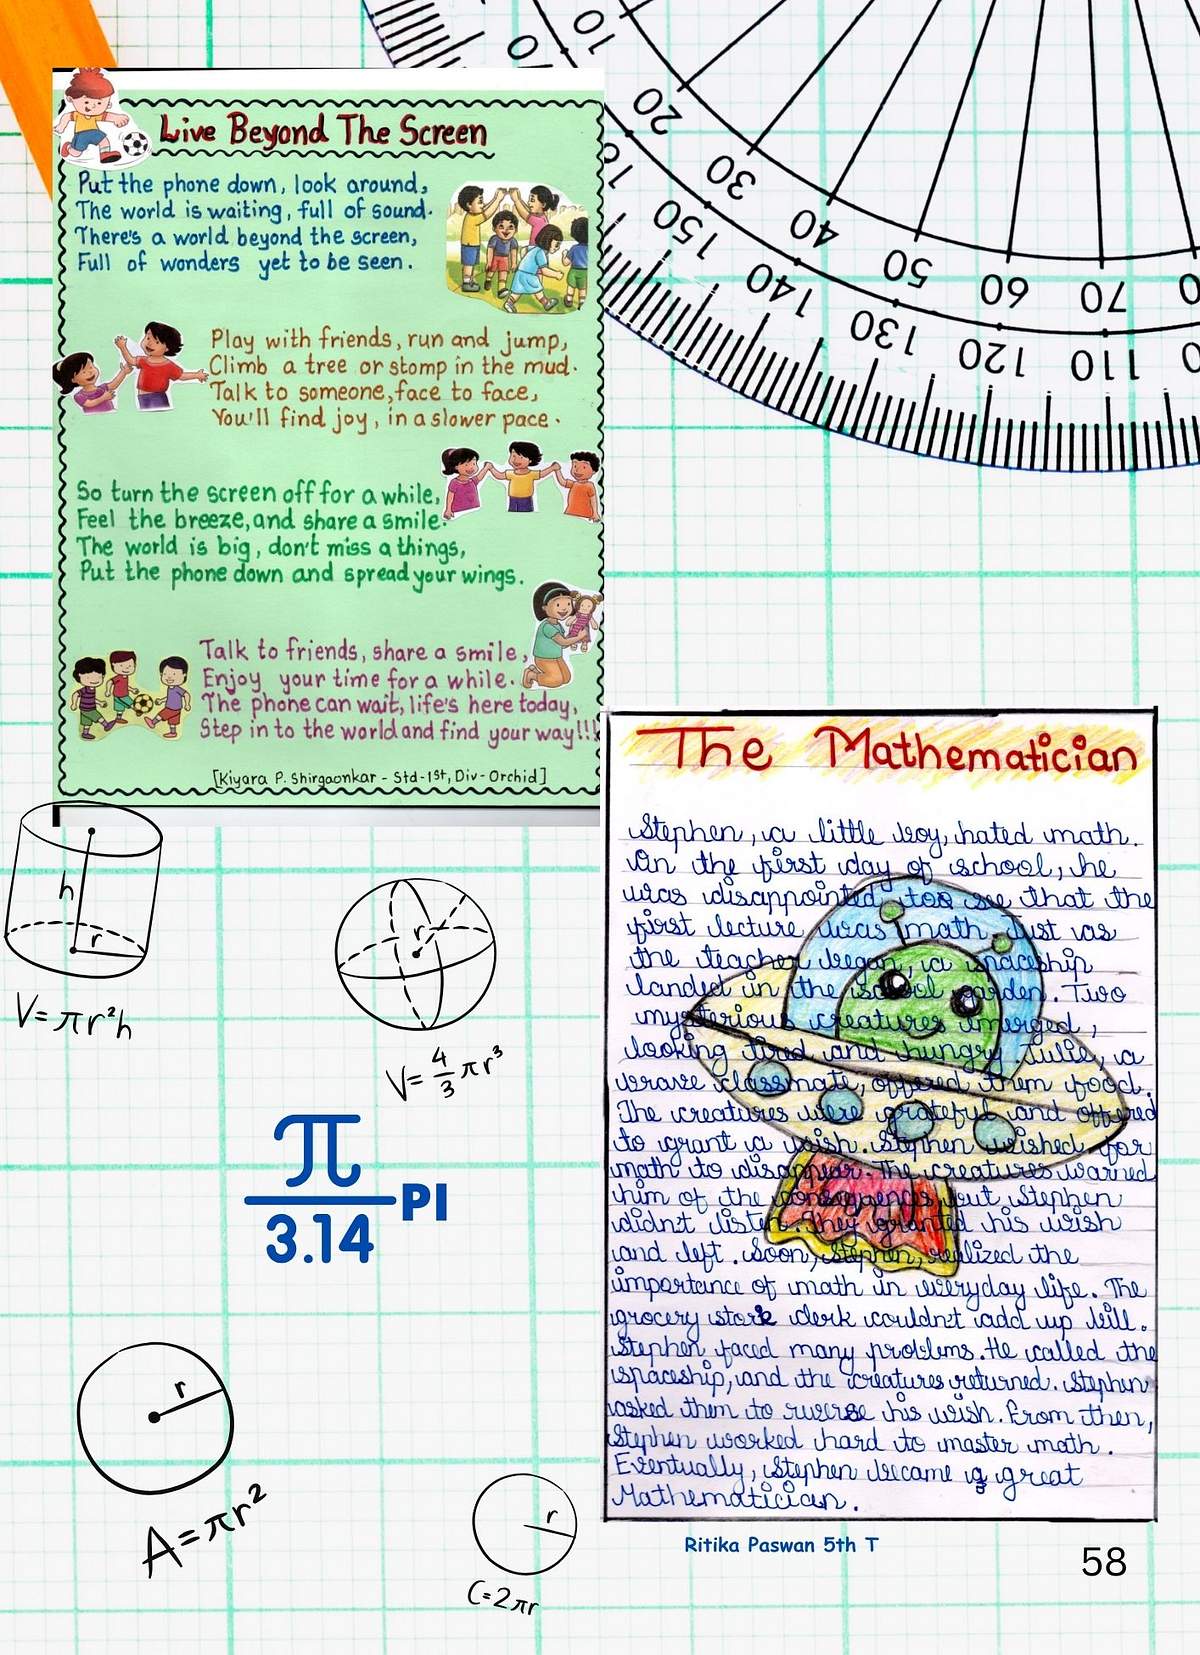 Live Beyond The Screen
Put the phone down, look around,
The world is waiting, full of sound.
There's a world beyond the screen,
Full of wonders yet to be seen.
Play with friends, run and jump,
Climb a tree or stomp in the mud.
Talk to someone, face to face,
You'll find joy, in a slower pace.
So turn the screen off for a while,
Feel the breeze, and share a smile.
The world is big, don't miss a things,
Put the phone down and spread your wings.
Talk to friends, share a smile,
Enjoy your time for a while.
The phone can wait, life's here today,
Step in to the world and find your way!!!
[Kiyara P. Shirgaonkar - Std-1st, Div-Orchid]
10
20
30
40
50
60
70
150
140
130
120
110
h
r
V=πr²h
r
V=4/3πr³
π
3.14
PI
r
A=πr²
r
C=2πr
The Mathematician
Stephen, a little boy, hated math.
On the first day of school, he
was disappointed too see that the
first lecture was math. Just as
the teacher began, a spaceship
landed in the school garden. Two
mysterious creatures emerged,
looking tired and hungry. Julie, a
brave classmate, offered them food.
The creatures were grateful and offered
to grant a wish. Stephen wished for
math to disappear. The creatures warned
him of the consequences but Stephen
didn't listen. They granted his wish
and left. Soon, Stephen, realized the
importance of math in everyday life. The
grocery store clerk couldn't add up bill.
Stephen faced many problems. He called the
spaceship, and the creatures returned. Stephen
asked them to reverse his wish. From then,
Stephen worked hard to master math.
Eventually, Stephen became a great
Mathematician.
Ritika Paswan 5th T
58